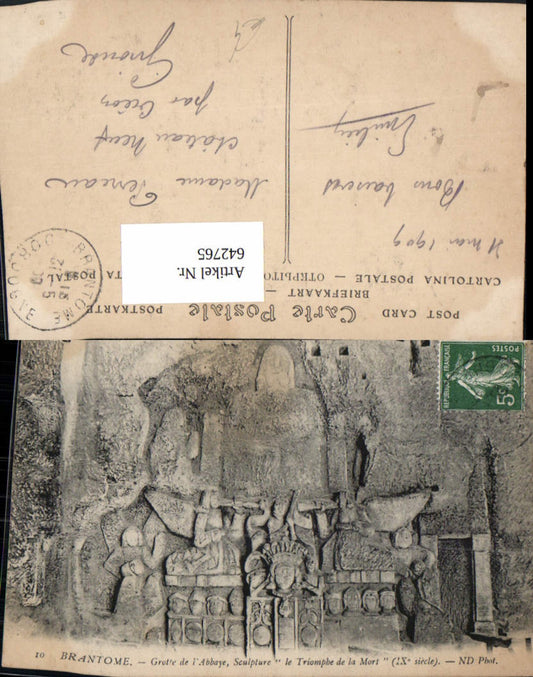 POST CARD — Carte Postale — POSTKARTE
BRIEFKAART —
CARTOLINA POSTALE —
21 mai 1909
Bons baisers
Emilien
Madame
château neuf
par
Gironde
BRANTOME
DORDOGNE
Artikel Nr.
642765
RÉPUBLIQUE FRANÇAISE
POSTES
5c
10 BRANTOME. — Grotte de l'Abbaye, Sculpture " le Triomphe de la Mort " (IXe siècle). — ND Phot.